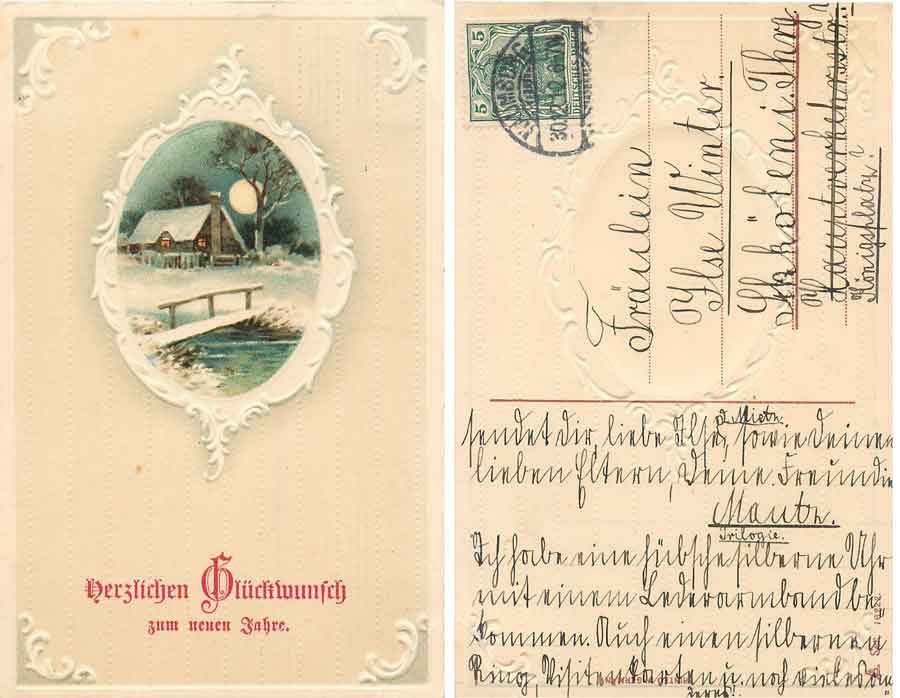 Herzlichen Glückwunsch
zum neuen Jahre.
5
5
DEUTSCHES REICH
HAMBURG
30.12.10.6-7N.
Fräulein
Ilse Winter.
Skölen i. Thrg.
Hauptverkehrsstr.
Königsplatz?
u. Mietz.
sendet dir, liebe Ilse, sowie deinen
lieben Eltern, deine Freundin
Mautz.
Trilogie.
Ich habe eine hübsche silberne Uhr
mit einem Lederarmband be=
kommen. Auch einen silbernen
Ring, Visitenkarten u. noch vieles an=
deres!